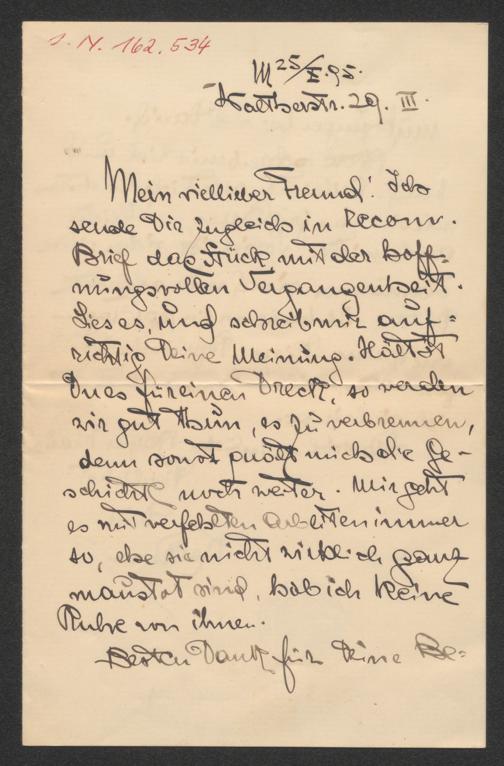 I. N. 162.534
M 25/X. 95.
Waltherstr. 29. III.
Mein viellieber Freund! Ich
sende Dir zugleich in Recom.
Brief das Stück mit der hoff-
nungsvollen Vergangenheit.
Lies es, und schreib mir auf-
richtig Deine Meinung. Hältst
Du es für einen Dreck, so werden
wir gut thun, es zu verbrennen,
denn sonst quält mich die Ge-
schichte noch weiter. Mir geht
es mit verfehlten Arbeiten immer
so, ehe sie nicht wirklich ganz
maustot sind, hab ich keine
Ruhe von ihnen.
Besten Dank für Deine Be-